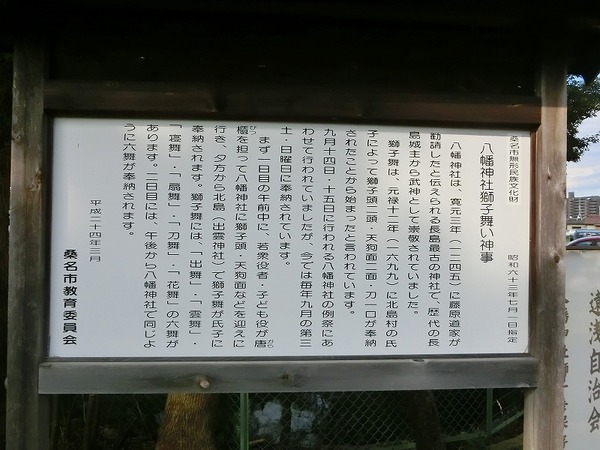 桑名市無形民族文化財　昭和六十三年七月一日指定
八幡神社獅子舞い神事
八幡神社は、寛元三年（一二四五）に藤原道家が
勧請したと伝えられる長島最古の神社で、歴代の長
島城主から武神として崇敬されていました。
獅子舞は、元禄十二年（一六九九）に北島村の氏
子によって獅子頭二頭・天狗面二面・刀一口が奉納
されたことから始まったと言われています。
九月十四日・十五日に行われる八幡神社の例祭にあ
わせて行われていましたが、今では毎年九月の第三
土・日曜日に奉納されています。
まず一日目の午前中に、若衆役者・子ども役が唐
から
櫃を担って八幡神社に獅子頭・天狗面などを迎えに
かつ
行き、夕方から北島（出雲神社）で獅子舞が氏子に
奉納されます。獅子舞には、「出舞」・「雲舞」・
「寝舞」・「扇舞」・「刀舞」・「花舞」の六舞が
あります。二日目には、午後から八幡神社で同じよ
うに六舞が奉納されます。
平成二十四年三月
桑名市教育委員会
遠浅自治会